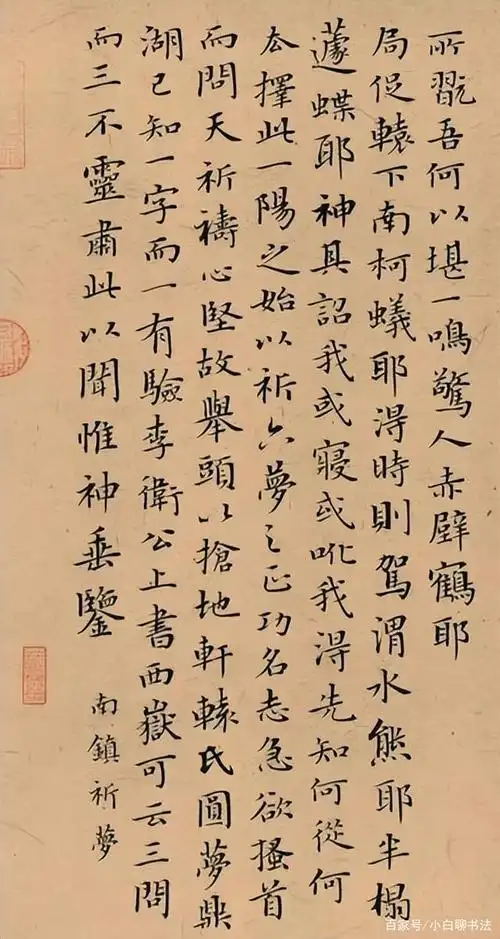 所翫吾何以堪一鳴驚人赤壁鶴耶
局促轅下南柯蟻耶得時則駕渭水熊耶半榻
蘧蝶耶神其詔我或寢或吪我得先知何從何
去擇此一陽之始以祈六夢之正功名志急欲搔首
而問天祈禱心堅故舉頭以搶地軒轅氏圓夢鼎
湖已知一字而一有驗李衛公上書西嶽可云三問
而三不靈肅此以聞惟神垂鑒
南鎮祈夢
百家号/小白聊书法